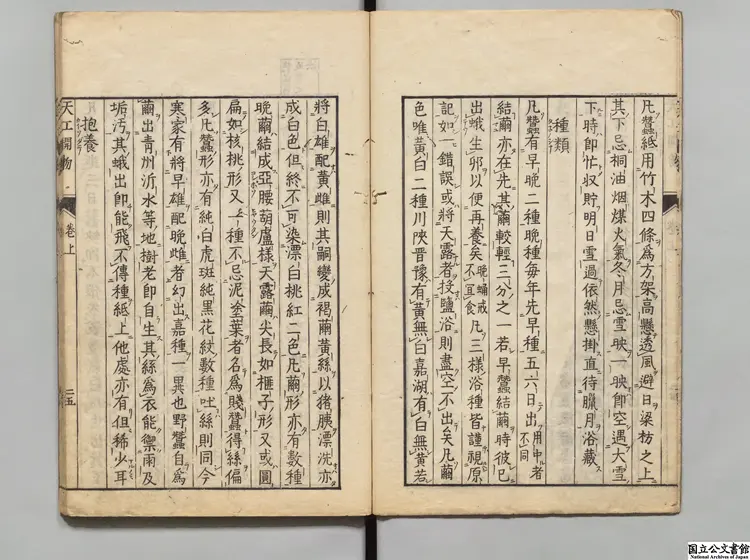 凡蠶紙用竹木四條爲方架高懸透風避日梁枋之上
其下忌桐油烟煤火氣冬月忌雪映一映即空遇大雪
下時即忙収貯明日雪過依然懸掛直待臘月浴藏
種類
凡蠶有早晚二種晚種每年先早種五六日出用中者不同
結繭亦在先其繭較輕三分之一若早蠶結繭時彼已
出蛾生卵以便再養矣晚蛹戒不宜食凡三樣浴種皆謹視原
記如一錯誤或將天露者投鹽浴則盡空不出矣凡繭
色唯黃白二種川陝晉豫有黃無白嘉湖有白無黃若
將白雄配黃雌則其嗣變成褐繭黃絲以猪胰漂洗亦
成白色但終不可染漂白桃紅二色凡繭形亦有數種
晚繭結成亞腰葫蘆樣天露繭尖長如榧子形又或圓
扁如核桃形又一種不忌泥塗葉者名爲賤蠶得絲偏
多凡蠶形亦有純白虎斑純黑花紋數種吐絲則同今
寒家有將早雄配晚雌者幻出嘉種一異也野蠶自爲
繭出青州沂水等地樹老即自生其絲爲衣能禦雨及
垢汚其蛾出即能飛不傳種紙上他處亦有但稀少耳
抱養
天工開物 卷上 二五
国立公文書館
National Archives of Japan